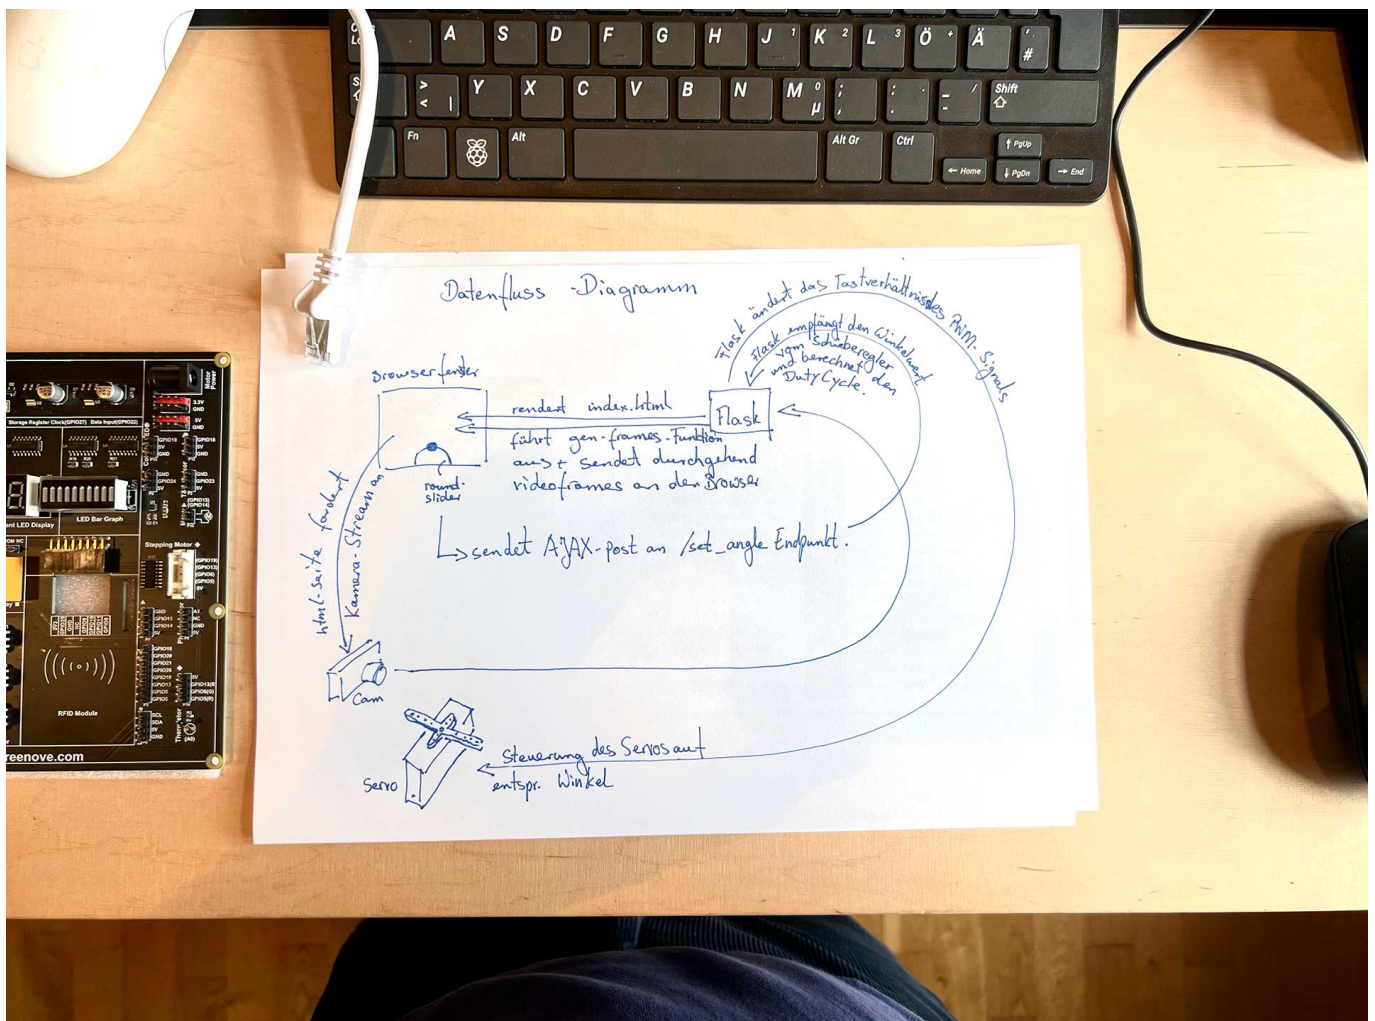 A S D F G H J 1 K 2 L 3 Ö + Ä ' #
> < | Y X C V B N M 0 µ ; , : . _ - / Shift
Fn Alt Alt Gr Ctrl ↑ PgUp
← Home ↓ PgDn → End
Datenfluss-Diagramm
Flask ändert das Tastverhältnis des PWM-Signals
Flask empfängt den Winkelwert
vom Schieberegler
und berechnet den
DutyCycle.
Browserfenster
rendert index.html
Flask
führt gen-frames-Funktion
aus + sendet durchgehend
videoframes an den Browser
round-
slider
sendet AJAX-post an /set_angle Endpunkt.
html-seite fordert
Kamera-Stream an
Cam
Steuerung des Servos auf
entspr. Winkel
Servo
Motor
Power
3.3V
GND
5V
GND
Storage Register Clock(GPIO27) Data Input(GPIO22)
GPIO18
5V
GND
GPIO18
5V
GND
GND
GPIO24
5V
GND
GPIO23
5V
LED Bar Graph
LED Display
Stepping Motor
RFID Module
SCL
SDA
5V
GND
reenove.com